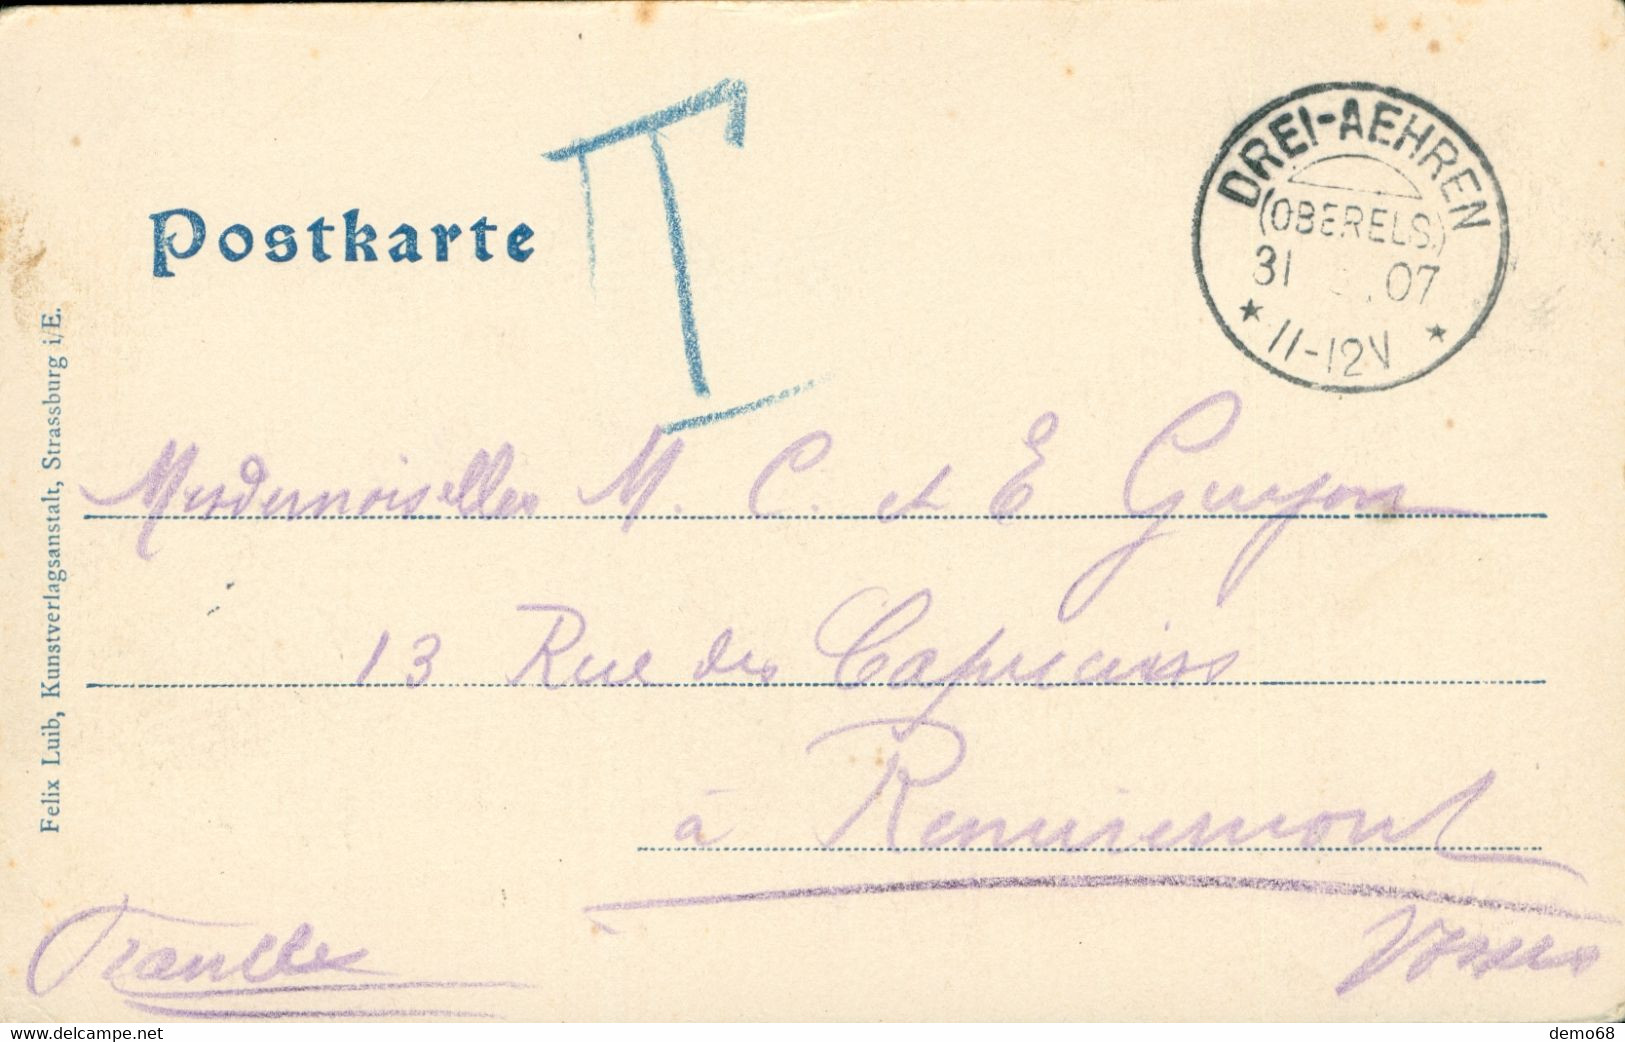 Postkarte
T
DREI-AEHREN
(OBERELS.)
31 .07
* 11-12V *
Mesdemoiselles M. C. et E Guyon
13 Rue des Capucins
à Remiremont
Vosges
France
Felix Luib, Kunstverlagsanstalt, Strassburg i/E.
www.delcampe.net
demo68